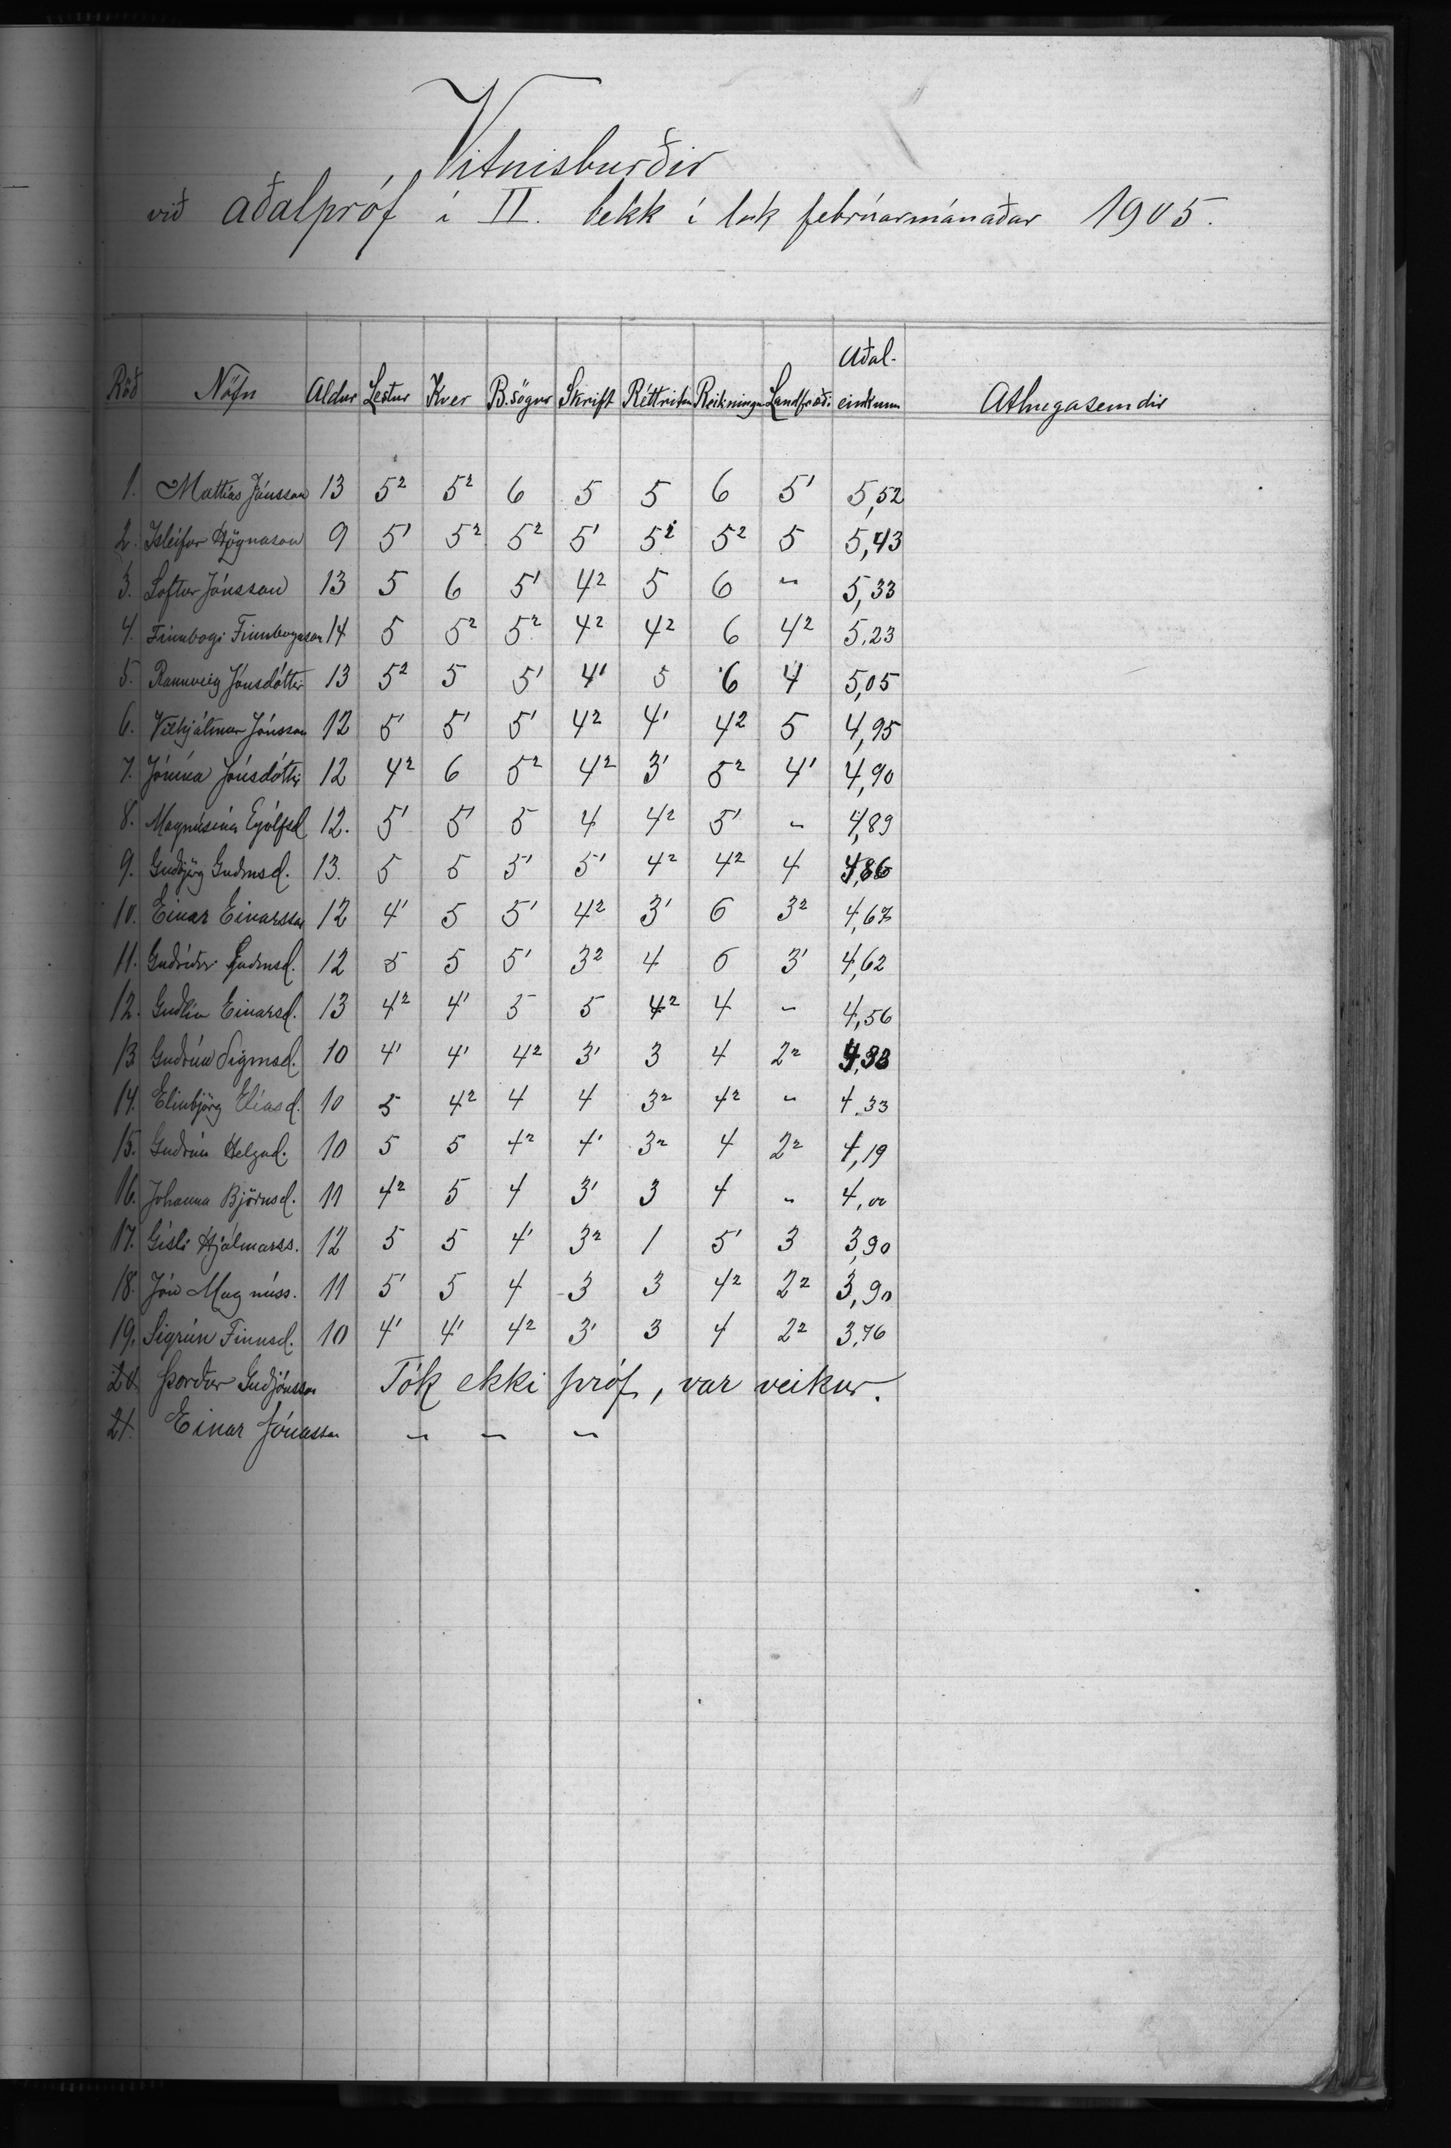 Vitnisburðir
við aðalpróf í II. bekk í lok febrúarmánaðar 1905.
Röð Nöfn Aldur Lestur Kver B.sögur Skrift Réttritun Reikningur Landfræði Aðal-einkunn Athugasemdir
1. Mattías Jónsson 13 5² 5² 6 5 5 6 5¹ 5,52
2. Ísleifur Högnason 9 5¹ 5² 5² 5¹ 5² 5² 5 5,43
3. Loftur Jónsson 13 5 6 5¹ 4² 5 6 " 5,33
4. Finnbogi Finnbogason 14 5 5² 5² 4² 4² 6 4² 5.23
5. Rannveig Jónsdóttir 13 5² 5 5¹ 4¹ 5 6 4 5,05
6. Vilhjálmur Jónsson 12 5¹ 5¹ 5¹ 4² 4¹ 4² 5 4,95
7. Jónína Jónsdóttir 12 4² 6 5² 4² 3¹ 5² 4¹ 4,90
8. Magnúsína Eyjólfsd 12. 5¹ 5¹ 5 4 4² 5¹ " 4,89
9. Guðbjörg Guðmsd. 13. 5 5 5¹ 5¹ 4² 4² 4 4,86
10. Einar Einarsson 12 4¹ 5 5¹ 4² 3¹ 6 3² 4,67
11. Guðríður Guðmsd. 12 5 5 5¹ 3² 4 6 3¹ 4,62
12. Einarsd. 13 4² 4¹ 5 5 4² 4 " 4,56
13 Guðrún Sigmsd. 10 4¹ 4¹ 4² 3¹ 3 4 2²
14. Elínbjörg Elíasd. 10 5 4² 4 4 3² 4² " 4.33
15. Guðrún Helgad. 10 5 5 4² 4¹ 3² 4 2² 4,19
16. Jóhanna Björnsd. 11 4² 5 4 3¹ 3 4 " 4,00
17. Gísli Hjálmarss. 12 5 5 4¹ 3² 1 5¹ 3 3,90
18. Jón Magnúss. 11 5¹ 5 4 3 3 4² 2² 3,90
19. Sigrún Finnsd. 10 4¹ 4¹ 4² 3¹ 3 4 2² 3,76
20. Þorður Guðjónsson Tók ekki próf, var veikur.
21. Einar Jónasson " " "